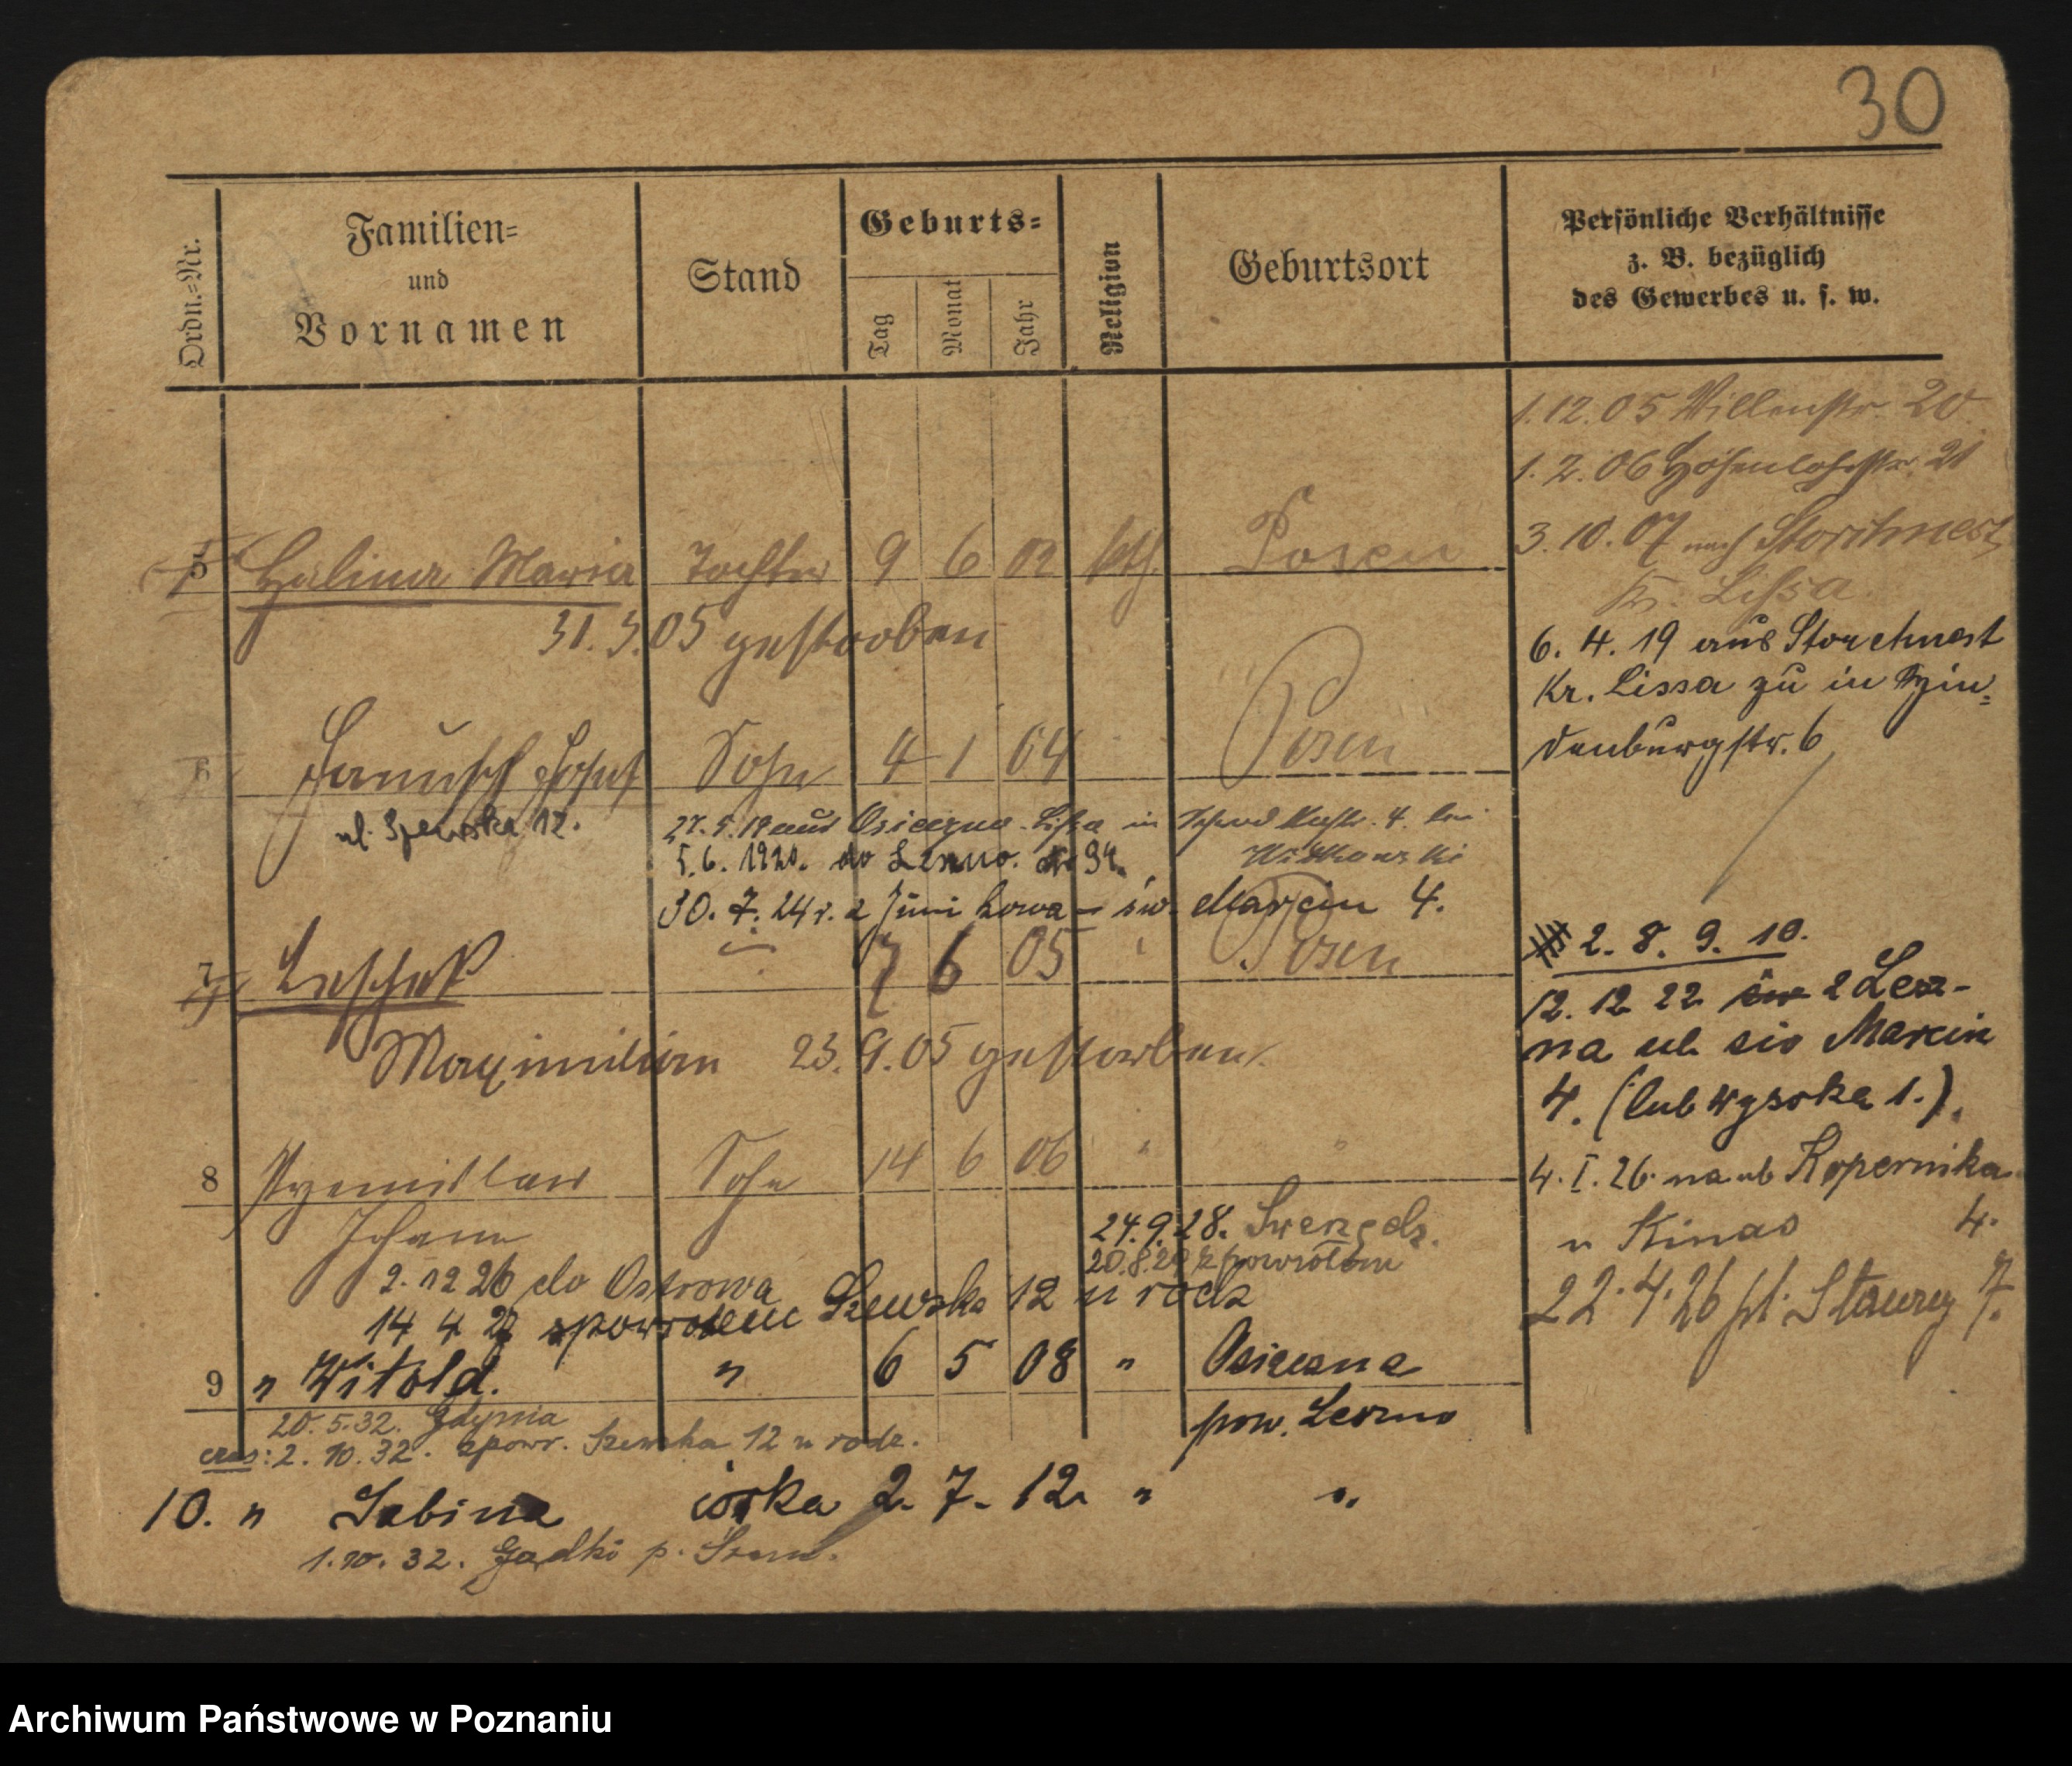 30
Ordn.=Nr.
Familien=
und
Vornamen
Stand
Geburts=
Tag
Monat
Jahr
Religion
Geburtsort
Persönliche Verhältnisse
z. B. bezüglich
des Gewerbes u. s. w.
1.12.05 Villenstr. 20
1.2.06 Hohenlohestr. 21
3.10.07 nach Storchnest
Kr. Lissa
6.4.19 aus Storchnest
Kr. Lissa zu in Hin=
denburgstr. 6
5 Halina Maria Tochter 9 6 02 kth. Posen
31.3.05 gestorben
6 Janusch Josef Sohn 4 1 04 Posen
ul. Szewska 12.
27.5.19 aus Osieczna Lissa in 4. bei
Witkowski
5.6.1920. do Leszno. 94.
30.7.24 r. z Juni kowa – św. Marcin 4.
7 Leschek 7 6 05 " Posen
Maximilian 23.9.05 gestorben.
2. 8. 9. 10.
12.12 22 z Lesz-
na ul. św Marcin
4. (lub wysoka 1.).
8 Przemislaw Sohn 14 6 06 " "
Johann
4.I.26. na ul Kopernika
u Kinas 4.
24.9.28. Swarzędz.
20.8.29 z powrotem
2.12 26 do Ostrowa
14 4 27 spowrotem Szewska 12 u rodz
22.4.26 pl. Stawny 7.
9 " Witold. " 6 5 08 " Osieczna
pow. Leszno
20.5.32. Gdynia
czas: 2.10.32. zpowr. Szewska 12 u rodz.
10. " Sabina córka 2. 7. 12. " "
1.10.32. Gądki p. Śrem.
Archiwum Państwowe w Poznaniu